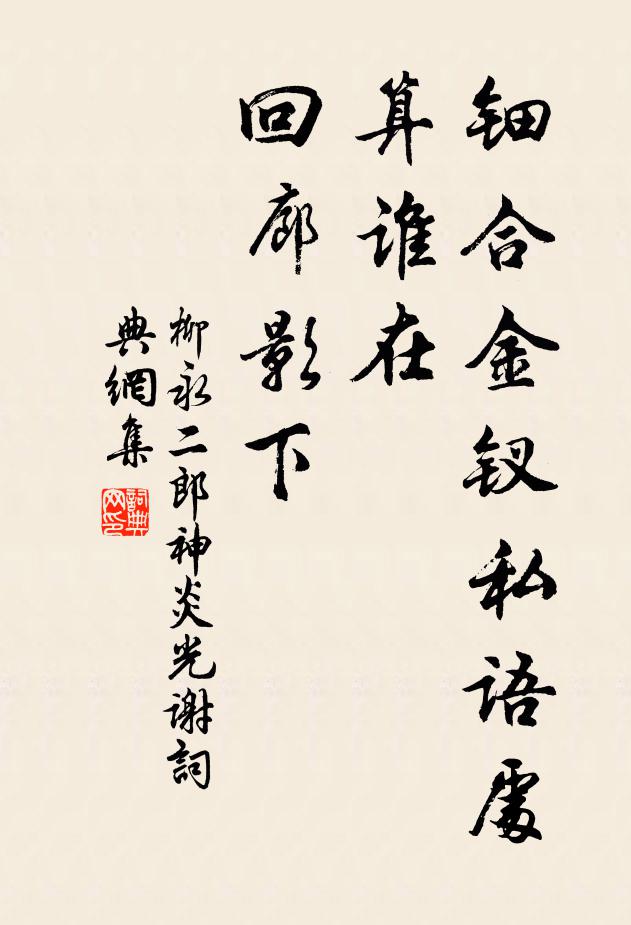 钿合金钗私语處
算谁在
回廊影下
柳永二郎神炎光谢詞
典網集
詞典
网印